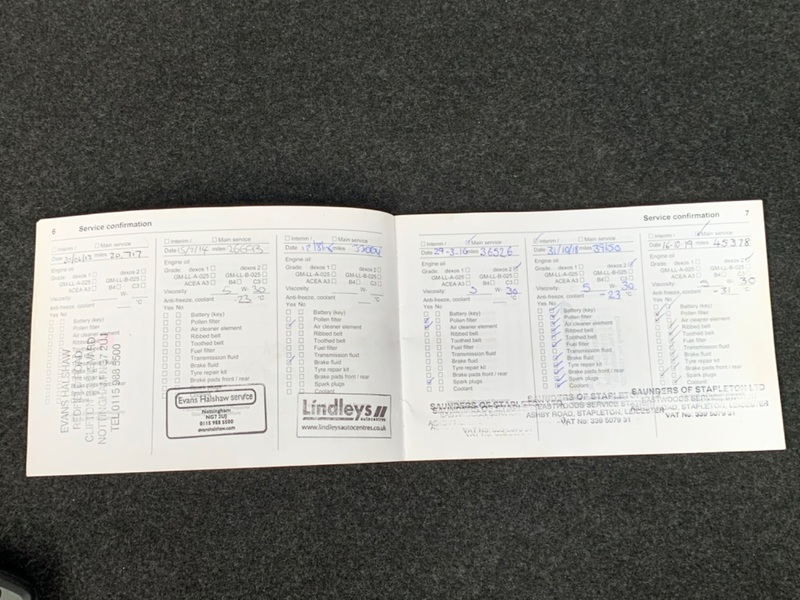 6 Service confirmation
Interim / Main service
Date miles 20,717
Engine oil
Grade: dexos 1 dexos 2
GM-LL-A-025 GM-LL-B-025
ACEA A3 B4 C3
Viscosity W-
Anti-freeze, coolant °C
Yes No
Battery (key)
Pollen filter
Air cleaner element
Ribbed belt
Toothed belt
Fuel filter
EVANS HALSHAW
TEL 0115 988 5500
Interim / Main service
Date 15/7/14 miles
Engine oil
Grade: dexos 1 dexos 2
GM-LL-A-025 GM-LL-B-025
ACEA A3 B4 C3
Viscosity 5 W- 30
Anti-freeze, coolant -23 °C
Yes No
Battery (key)
Pollen filter
Air cleaner element
Ribbed belt
Toothed belt
Fuel filter
Transmission fluid
Brake fluid
Tyre repair kit
Brake pads front / rear
Spark plugs
Coolant
Evans Halshaw service
Nottingham
NG7 2UJ
0115 988 5500
evanshalshaw.com
Interim / Main service
Date miles
Engine oil
Grade: dexos 1 dexos 2
GM-LL-A-025 GM-LL-B-025
ACEA A3 B4 C3
Viscosity W-
Anti-freeze, coolant °C
Yes No
Battery (key)
Pollen filter
Air cleaner element
Ribbed belt
Toothed belt
Fuel filter
Transmission fluid
Brake fluid
Tyre repair kit
Brake pads front / rear
Spark plugs
Coolant
Lindleys
AUTOCENTRES
www.lindleysautocentres.co.uk
Service confirmation 7
Interim / Main service
Date 29-3- miles 36526
Engine oil
Grade: dexos 1 dexos 2
GM-LL-A-025 GM-LL-B-025
ACEA A3 B4 C3
Viscosity 5 W- 30
Anti-freeze, coolant °C
Yes No
Battery (key)
Pollen filter
Air cleaner element
Ribbed belt
Toothed belt
Fuel filter
Transmission fluid
Brake fluid
Tyre repair kit
Brake pads front / rear
Spark plugs
Coolant
SAUNDERS OF STAPLETON
Interim / Main service
Date 31/10/18 miles 39150
Engine oil
Grade: dexos 1 dexos 2
GM-LL-A-025 GM-LL-B-025
ACEA A3 B4 C3
Viscosity 5 W- 30
Anti-freeze, coolant -23 °C
Yes No
Battery (key)
Pollen filter
Air cleaner element
Ribbed belt
Toothed belt
Fuel filter
Transmission fluid
Brake fluid
Tyre repair kit
Brake pads front / rear
Spark plugs
Coolant
SAUNDERS OF STAPLETON
EASTWOODS SERVICE
ASHBY ROAD, STAPLETON,
VAT No: 339 5079 31
Interim / Main service
Date 16-10-19 miles 45378
Engine oil
Grade: dexos 1 dexos 2
GM-LL-A-025 GM-LL-B-025
ACEA A3 B4 C3
Viscosity 5 W- 30
Anti-freeze, coolant -31 °C
Yes No
Battery (key)
Pollen filter
Air cleaner element
Ribbed belt
Toothed belt
Fuel filter
Transmission fluid
Brake fluid
Tyre repair kit
Brake pads front / rear
Spark plugs
Coolant
SAUNDERS OF STAPLETON LTD
VAT No: 339 5079 31